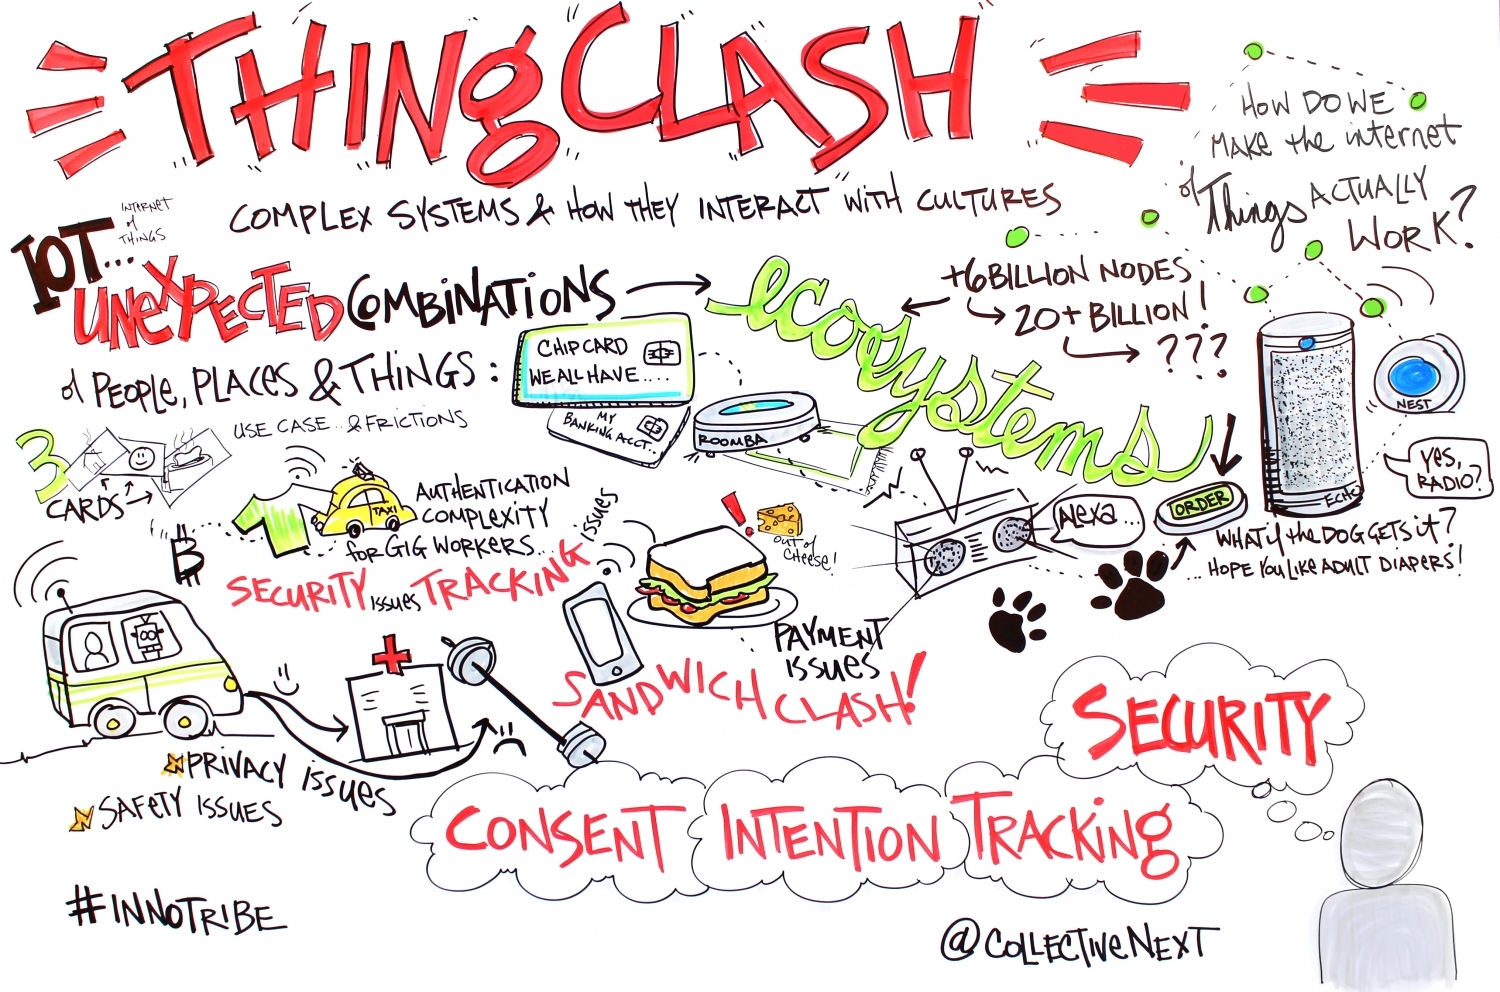 THINGCLASH
COMPLEX SYSTEMS & HOW THEY INTERACT WITH CULTURES
HOW DO WE
MAKE the internet
of Things ACTUALLY
WORK?
IOT...
INTERNET
of
THINGS
UNEXPECTED COMBINATIONS
of PEOPLE, PLACES & THINGS:
ecosystems
+6 BILLION NODES
20+ BILLION!
???
CHIP CARD
WE ALL HAVE....
MY
BANKING ACCT...
ROOMBA
USE CASE...& FRICTIONS
3
CARDS
TAXI
AUTHENTICATION
COMPLEXITY
for GIG WORKERS...
B
SECURITY ISSUES TRACKING ISSUES
!
OUT of
CHEESE!
PAYMENT
ISSUES
SANDWICH CLASH!
Alexa...
ORDER
ECHO
NEST
YES,
RADIO?
WHAT if the DOG GETS iT?
...HOPE YOU LIKE ADULT DIAPERS!
PRIVACY ISSUES
SAFETY ISSUES
SECURITY
CONSENT INTENTION TRACKING
#INNOTRIBE
@COLLECTIVENEXT